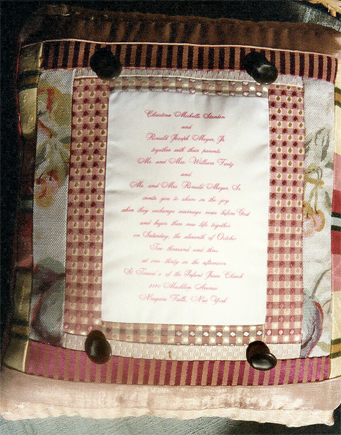 Christina Michelle
and
Ronald Joseph Meyer, Jr.
together with their parents
Mr. and Mrs. William
and
Mr. and Mrs. Ronald Meyer, Sr.
invite you to share in the joy
when they exchange marriage vows before God
and begin their new life together
on Saturday, the eleventh of October
Two thousand and three
at one thirty in the afternoon
St. Church
Avenue
Niagara Falls, New York